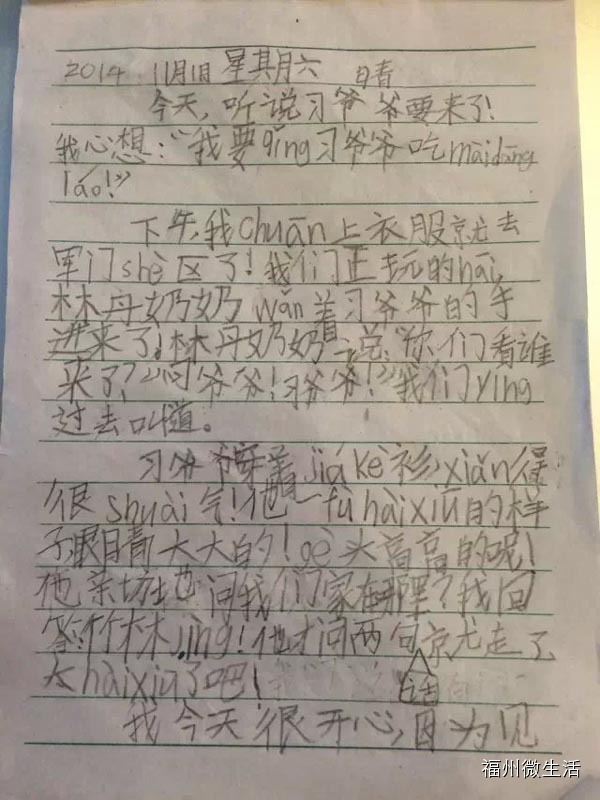 2014 11月1日 星期六 日青
今天,听说习爷爷要来了!
我心想:“我要qǐng习爷爷吃màidāng
láo!”
下午,我chuān上衣服就去
军门shè区了!我们正玩的hāi,
林丹奶奶wǎn着习爷爷的手
进来了!林丹奶奶说:“你们看谁
来了?”“习爷爷!习爷爷!”我们yíng
过去叫道。
习爷爷穿着jiákè衫,xiǎn得
很shuài气!他一fù hàixiū的样
子眼睛大大的!gè头高高的呢!
他亲切地问我们家在哪里?我回
答:竹林jìng!他才问两句就走了,
话
太hàixiū了吧!
我今天很开心,因为见
福州微生活